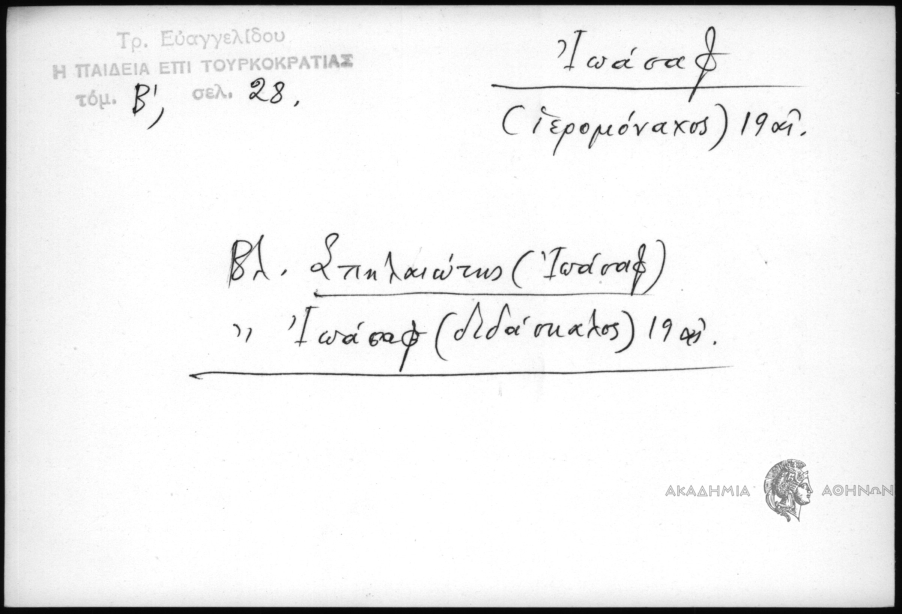 Τρ. Εὐαγγελίδου
Η ΠΑΙΔΕΙΑ ΕΠΙ ΤΟΥΡΚΟΚΡΑΤΙΑΣ
τόμ. Β', σελ. 28.
Ἰωάσαφ
(ἱερομόναχος) 19 αἰ.
Βλ. Σπηλαιώτης (Ἰωάσαφ)
" Ἰωάσαφ (διδάσκαλος) 19 αἰ.
ΑΚΑΔΗΜΙΑ ΑΘΗΝΩΝ